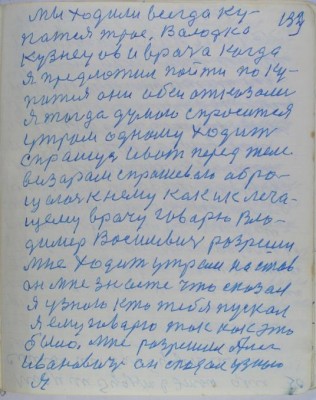 133
мы ходили всегда ку-
патся трое, Володка
Кузнецов и врача когда
я предложил пойти по ку-
патся они обеи отказали
я тогда думаю спросится
утром одному ходит
спрашуя и вот перед тем
визаром спрашеваю обра-
щаюся к нему как к леча-
щему врачу говарю Вла-
димер Восильевич разреши
мне ходит утром на став
он мне знаете что сказал
я узнаю кто тебя пускал
я ему говарю так как это
было. мне разрешил Алек
Иванович он сказал узнаю
я